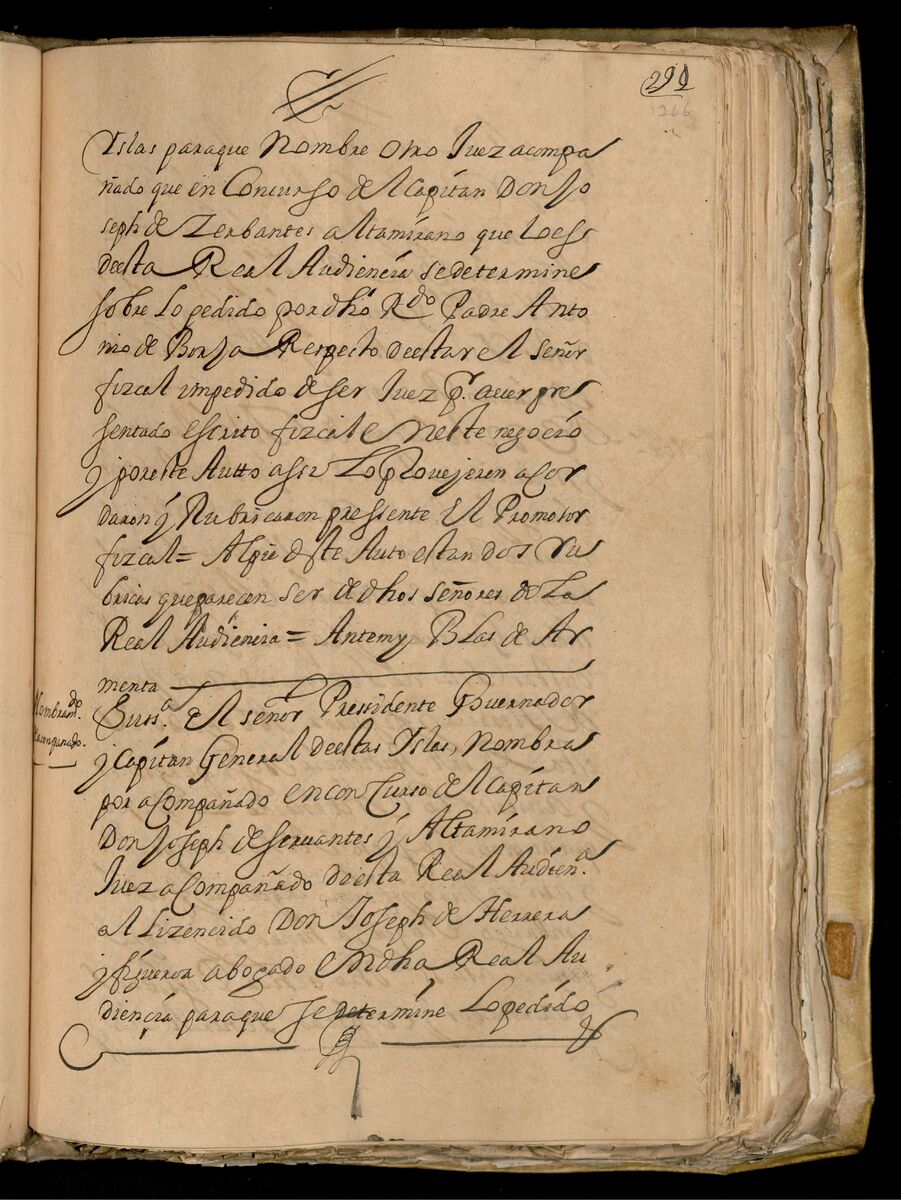 291
266
Yslas paraque Nombre otro Juez acompa
ñado que en Concurso del Capitan Don Jo
seph de Zerbantes altamirano que Loes
deesta Real Audiencia sedetermine
sobre Lo pedido por dho Rdo Padre Anto
nio de Borja Respecto deestar el señor
fizcal impedido de ser Juez pr. aver pre
sentado escrito fizcal eneste negocio
y poreste Autto assi Lo Proveyeren acor
daron y Rubricaron pressente el Promotor
fizcal = Alpie deste Auto estan dos ru
bricas queparecen ser de dhos señores de La
Real Audiencia = Antemy Blas de Ar
menta
Nombramdo.
acompañado.
Su ssa. el señor Pressidente Governador
y Capitan General deestas Yslas, Nombra
por acompañado enconcurso del Capitan
Don Joseph de servantes y Altamirano
Juez acompañado deesta Real Audiena.
al Lizencido Don Joseph de Herrera
y figueroa abogado endha Real Au
diencia paraque se determine Lopedido